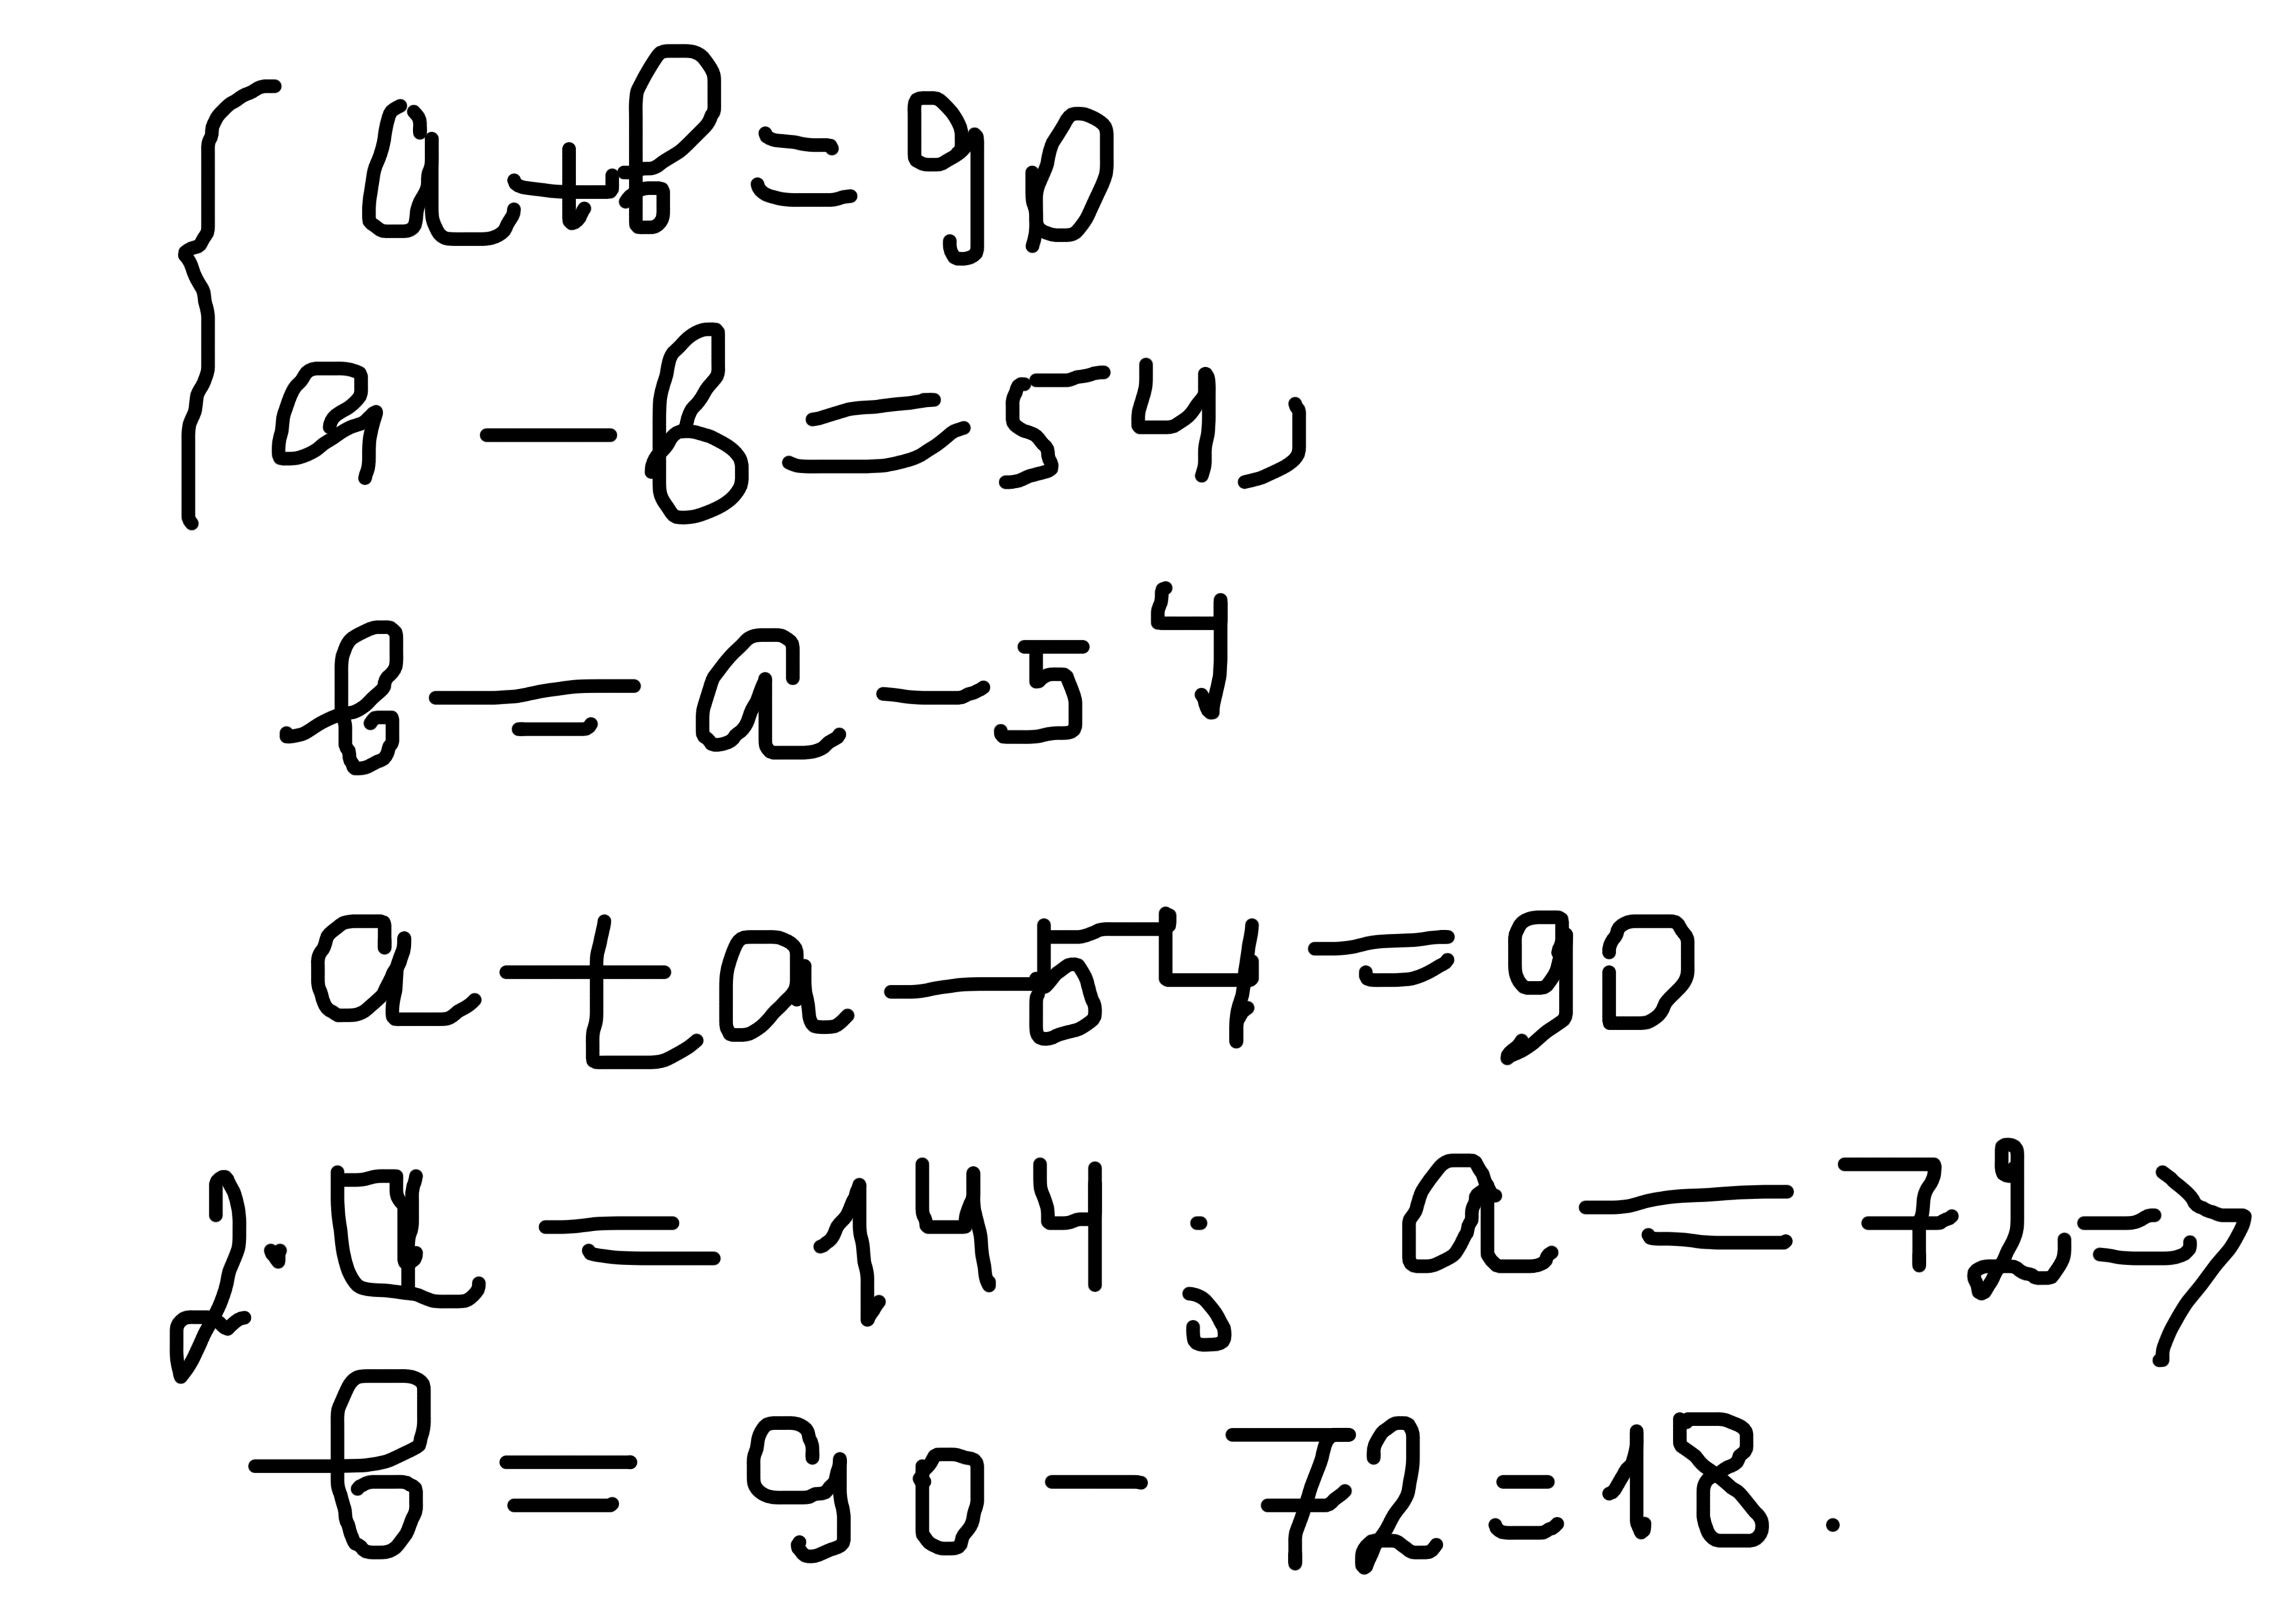 { a+b=90
a-b=54,
b=a-54
a+a-54=90
2·a=144; a=72=>
b=90-72=18.